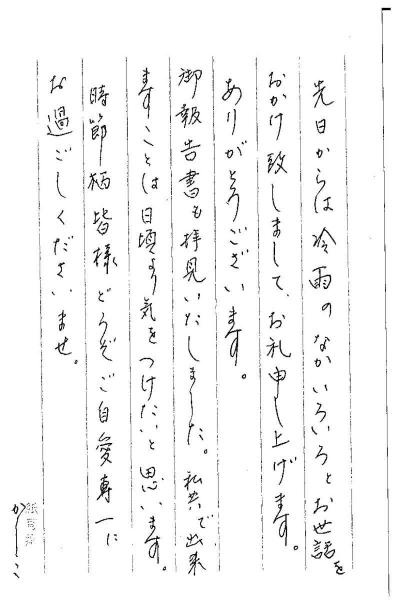 先日からは冷雨のなかいろいろとお世話を
おかけ致しまして、お礼申し上げます。
ありがとうございます。
御報告書も拝見いたしました。私共で出来
ますことは日頃より気をつけたいと思います。
時節柄皆様どうぞご自愛専一に
お過ごしくださいませ。
かしこ